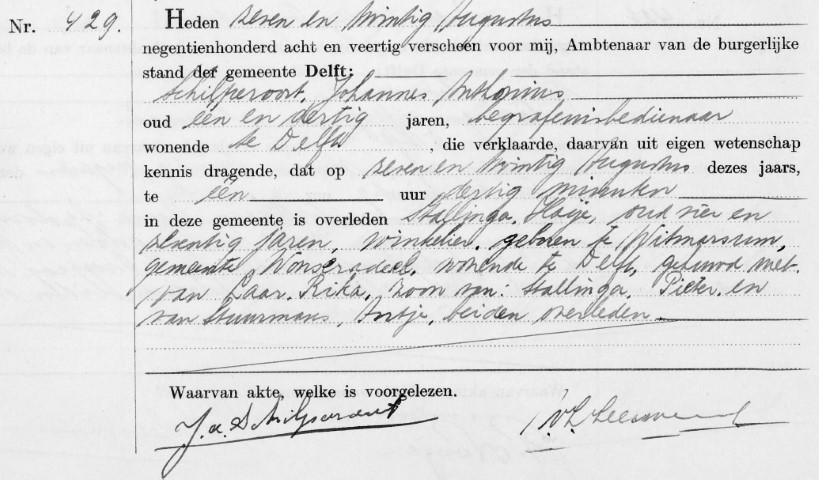 Nr. 429. Heden zeven en twintig Augustus
negentienhonderd acht en veertig verscheen voor mij, Ambtenaar van de burgerlijke
stand der gemeente Delft:
Schilperoort, Johannes Anthonius
oud een en dertig jaren, begrafenisbedienaar
wonende te Delft, die verklaarde, daarvan uit eigen wetenschap
kennis dragende, dat op zeven en twintig Augustus dezes jaars,
te één uur dertig minuten
in deze gemeente is overleden Stallinga, Haije, oud vier en
zeventig jaren, winkelier, geboren te Witmarsum,
gemeente Wonseradeel, wonende te Delft, gehuwd met
van Laar, Rika, zoon van: Stallinga, Pieter en
van Stuurmans, Antje, beiden overleden.
Waarvan akte, welke is voorgelezen.
J. A. Schilperoort